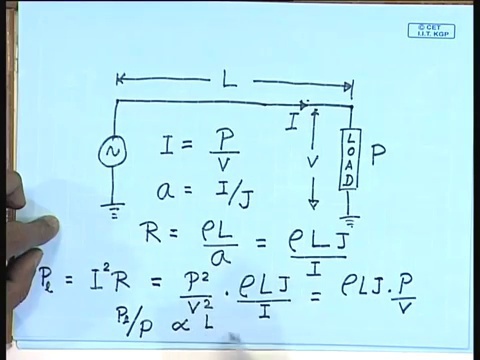 © CET
I.I.T. KGP
L
I
V
LOAD
P
~
I = P/V
a = I/J
R = ρL/a = ρLJ/I
Pℓ = I²R = P²/V² · ρLJ/I = ρLJ · P/V
Pℓ/P ∝ L